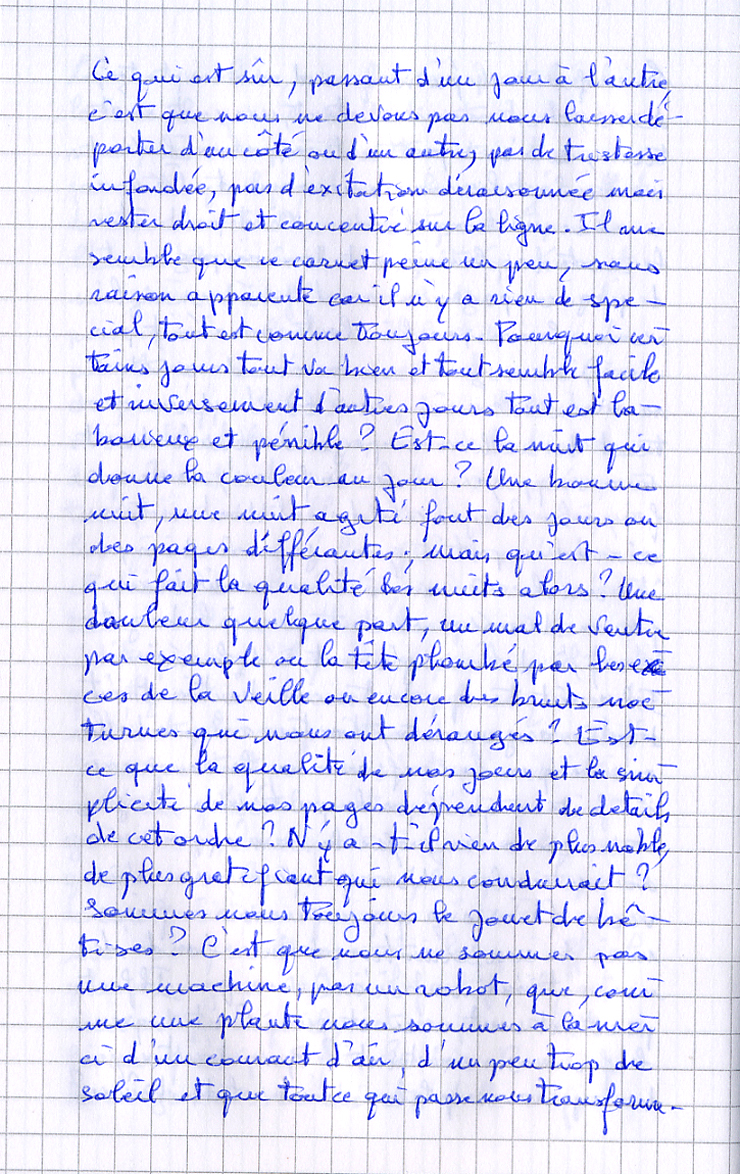 Ce qui est sûr, passant d'un jour à l'autre,
c'est que nous ne devons pas nous laisser dé-
porter d'un côté ou d'un autre, pas de tristesse
infondée, pas d'exitation déraisonnée mais
rester droit et concentré sur la ligne. Il me
semble que ce carnet peine un peu, sans
raison apparente car il n'y a rien de spe-
cial, tout est comme toujours. Pourquoi cer-
tains jours tout va bien et tout semble facile
et inversement d'autres jours tout est la-
borieux et pénible ? Est-ce la nuit qui
donne la couleur au jour ? Une bonne
nuit, une nuit agité font des jours ou
des pages différantes ; mais qu'est-ce
qui fait la qualité des nuits alors ? Une
douleur quelque part, un mal de ventre
par exemple ou la tête plombé par les ex-
ces de la veille ou encore des bruits noc-
turnes qui nous ont dérangés ? Est-
ce que la qualité de nos jours et la sim-
plicité de nos pages dépendent de details
de cet ordre ? N'y a-t-il rien de plus noble,
de plus gratifiant qui nous conduirait ?
Sommes nous toujours le jouet de bê-
tises ? C'est que nous ne sommes pas
une machine, pas un robot, que, com-
me une plante nous sommes à la mer-
ci d'un courant d'air, d'un peu trop de
soleil et que tout ce qui passe nous transforme.